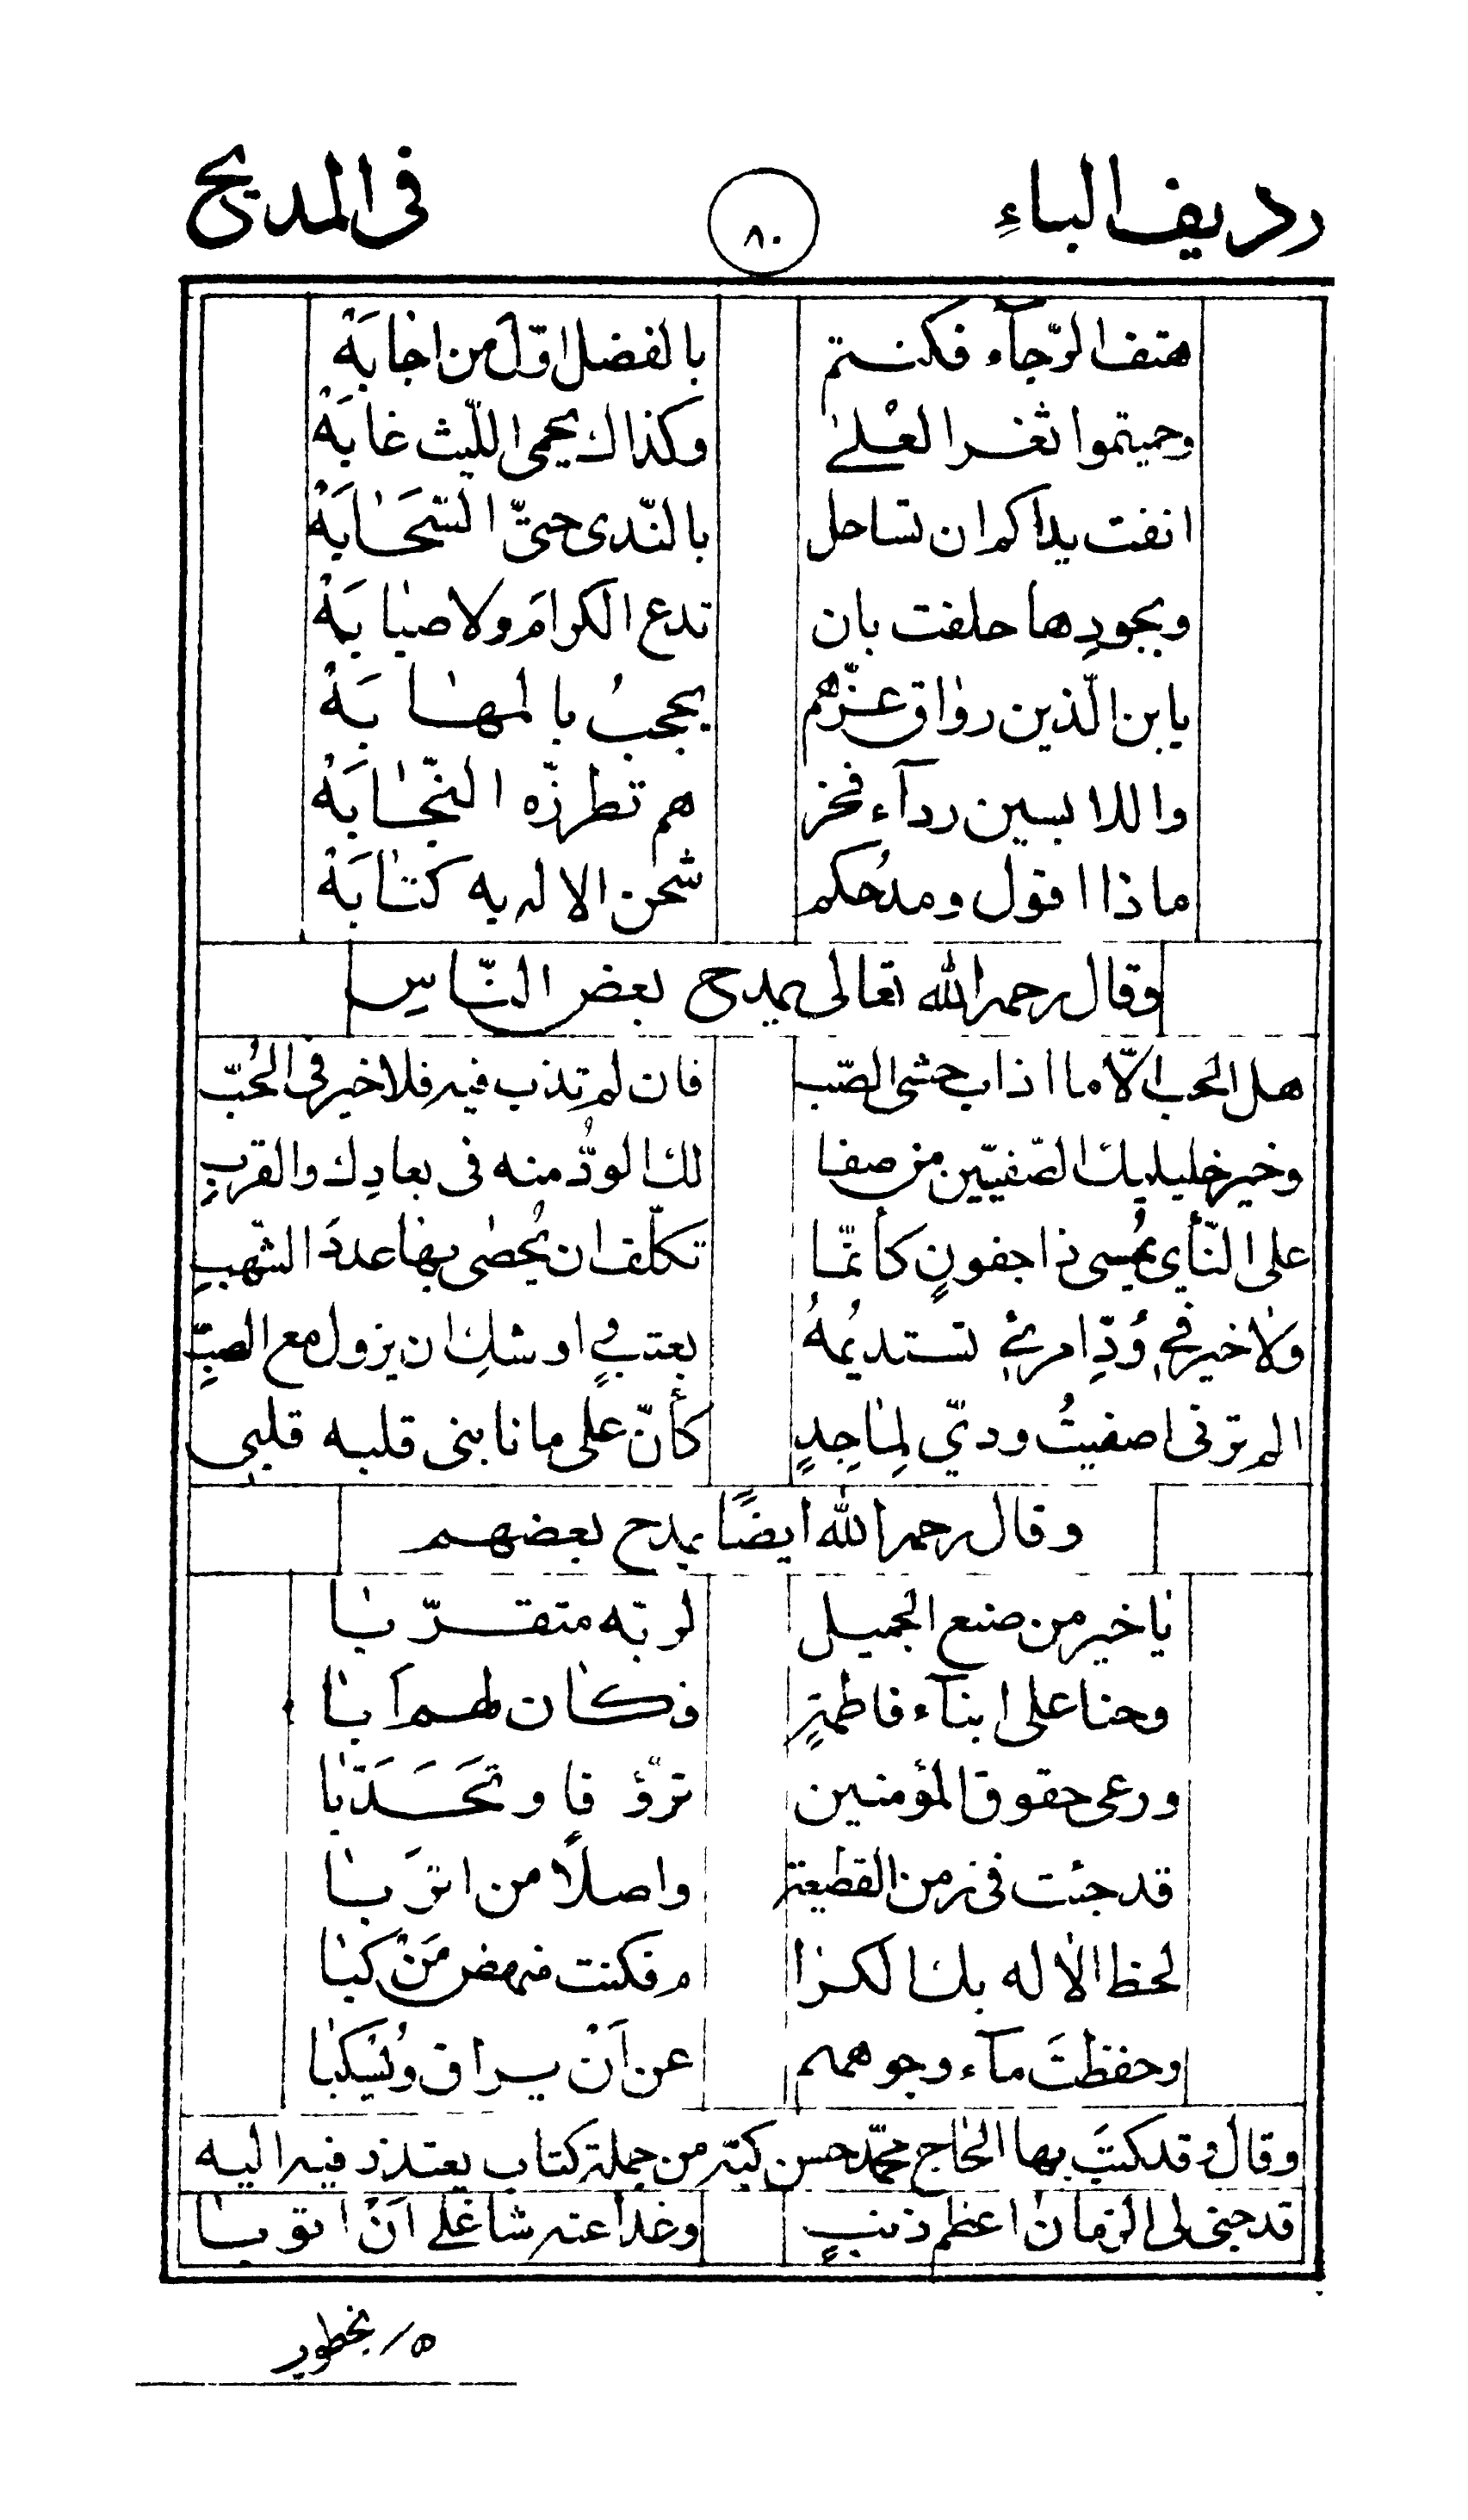 ردیف الباءِ ٨٠ فی المدیح
هتف الرّجآء فکنتم بالفضل اوّل من اجابَهْ
وحمیتموا ثغر العُلیٰ وکذاك یحمی اللّیث غابَهْ
انفت یداکم ان تساجل بالنّدی حتّی السَّحَابَهْ
وبجودِها حلفت بان تدع الکرامَ ولا صبابَهْ
یابن الّذین رواق عزّهم یحجبُ بالمهابَهْ
واللابسین ردآء فخرهم تطرزّه النّجابَهْ
ماذا اقول ومدحُکم شحن الاله به کتابَهْ
وقال رحمه الله تعالی یمدح بعض النّاسِ
هل الحب الّا ما اذاب حشی الصّب فان لم تذب فیه فلا خیر فی الحُبّ
وخیر خلیلیك الصّفیّین من صفا لك الودُّ منه فی بعادِك والقربِ
علی النّأي یُمسی ذا جفونٍ کأنّما تکلّف ان یُحصٰی بها عددَ الشّهبِ
ولا خیر في وُدِّ امرئٍ تستدیُمهُ بعتبٍ اوشك ان یزول مع العتبِ
الم ترنی اصفیتُ ودّي لِمٰاجِدٍ کأنّ علی ما نابنی قلبه قلبی
وقال رحمه الله ایضًا یمدح بعضهم
یٰا خیر من صنع الجمیل لربّه متقرّبٰا
وحنا علی ابنآء فاطمةٍ فکٰان لهم اَبٰا
ورعی حقوق المؤمنین ترؤّفا وتَحَدَّبٰا
قد جئت فی زمن القطیعة واصلًا من اترَبٰا
لحظ الاله بك الکرا م فکنت منهض مَنْ کبٰا
وحفظتَ مآء وجوههم عن اَنْ یراق ویُسْکبٰا
وقال وقد کتبَ بها الحٰاج محمّد حسن کبّه من جملة کتاب یعتذر فیه الیه
قد جنی لی الزمان اعظم ذنبٍ وغدا عنه شاغلي اَنْ اتوبٰا